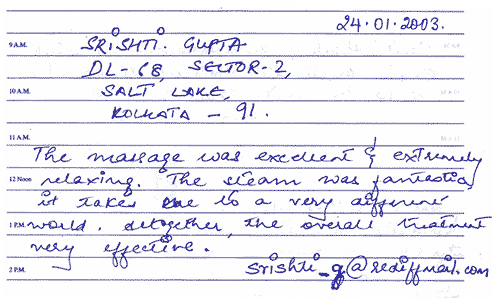 24.01.2003.
9 A.M. SRISHTI. GUPTA
DL-68, SECTOR-2,
10 A.M. SALT LAKE,
KOLKATA - 91.
11 A.M.
The massage was excellent & extremely
12 Noon relaxing. The steam was fantastic,
it takes one to a very different
1 P.M. world. Altogether, the overall treatment
very effective.
2 P.M. srishti_g@rediffmail.com